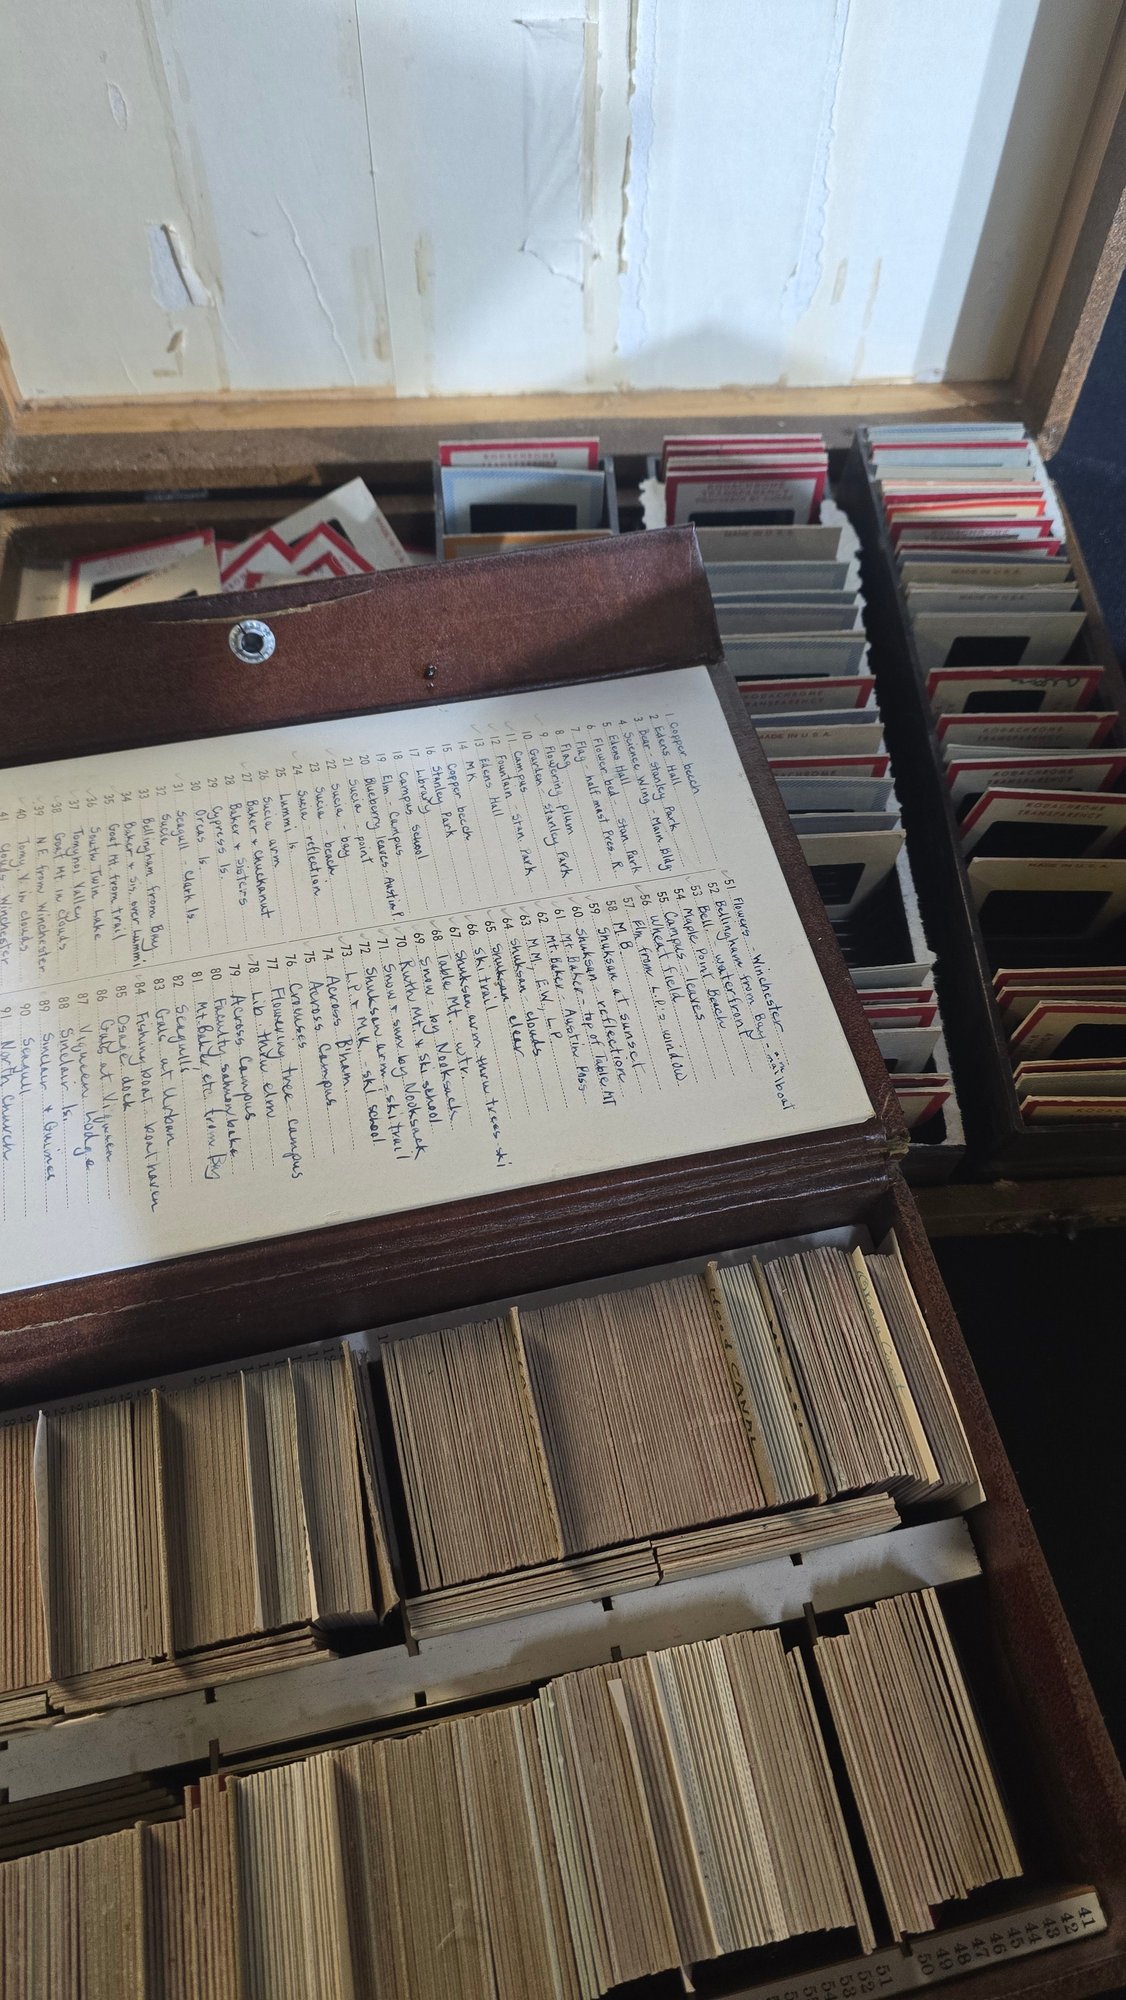 KODACHROME
TRANSPARENCY
KODACHROME
TRANSPARENCY
MADE IN U.S.A.
MADE IN U.S.A.
MADE IN U.S.A.
KODACHROME
TRANSPARENCY
KODACHROME
TRANSPARENCY
MADE IN U.S.A.
KODACHROME
TRANSPARENCY
1 Copper beech
2 Edens Hall
3 Bear - Stanley Park
4 Science Wing - Main Bldg
5 Edens Hall
6 Flower bed - Stan. Park
7 Flag - half mast Pres. R.
8 Flag
9 Flowering plum
10 Garden - Stanley Park
11 Campus
12 Fountain Stan. Park
13 Edens Hall
14 M K
15 Copper beech
16 Stanley Park
17 Library
18 Campus School
19 Elm - Campus
20 Blueberry leaves. Austin P.
21 Sucia point
22 Sucia - bay
23 Sucia - beach
24 Sucia reflection
25 Lummi Is.
26 Sucia arm
27 Baker & Chuckanut
28 Baker & Sisters
29 Cypress Is.
30 Orcas Is.
31 Seagull - Clark Is.
32 Sucia
33 Bellingham from Bay
34 Baker & Sis. over Lummi
35 Goat Mt from trail
36 South Twin Lake
37 Tomyhoi Valley
38 Goat Mt in clouds
39 N.E. from Winchester
40 Tomy. V. in clouds
41 Clouds - Winchester
51 Flowers - Winchester
52 Bellingham from Bay - mailboat
53 Bell. waterfront
54 Maple Point Beach
55 Campus - leaves
56 Wheat field
57 Elm from L.P.'s window
58 M. B.
59 Shuksan at sunset
60 Shuksan - reflection
61 Mt. Baker - top of Table Mt
62 Mt. Baker - Austin Pass
63 M.M, E.W, L.P
64 Shuksan - clouds
65 Shuksan clear
66 Ski trail
67 Shuksan arm thru trees ski
68 Table Mt. wtr.
69 Snow by Nooksack
70 Ruth Mt. & ski school
71 Snow & sun by Nooksack
72 Shuksan arm - ski trail
73 L.P. & M.K. ski school
74 Across B'ham
75 Across Campus
76 Crocuses
77 Flowering tree campus
78 Lib. thru elm
79 Across Campus
80 Faculty salmon bake
81 Mt Baker etc from Bay
82 Seagulls
83 Gale at Urban
84 Fishing boat - boat haven
85 Osage dock
86 Gub at Viqueen
87 Viqueen Lodge
88 Sinclair Is.
89 Sinclair & Guemes
90 Seagull
91 North Church
41
42
43
44
45
46
47
48
49
50
51
52
53
54